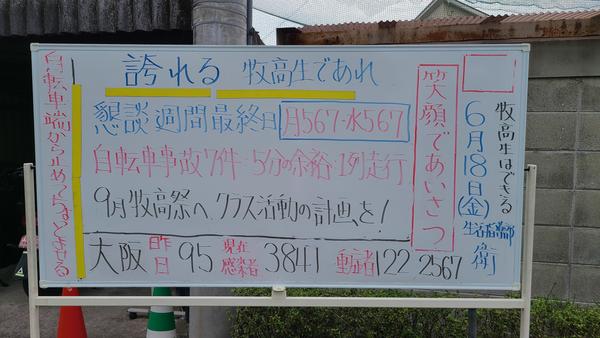 牧高生はできる
6月18日(金)
生活指導部
衛
笑顔であいさつ
誇れる 牧高生であれ
懇談週間最終日 月567-水567
自転車事故7件・5分の余裕・1列走行
9月牧高祭へ、クラス活動の計画を!
大阪 昨日 95 現在感染者 3841 重症者 122 2567
自転車端から止めつなとさせる